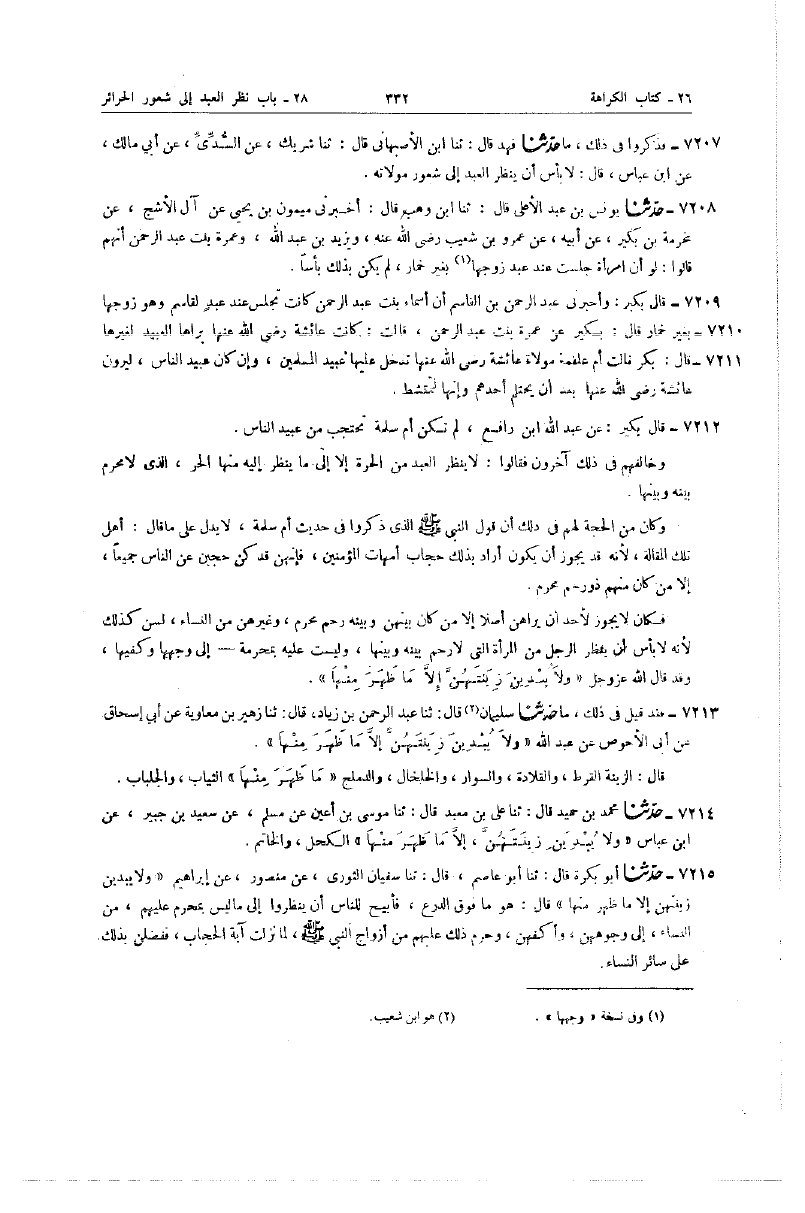 ٢٦ ـ كتاب الكراهة ٣٣٢ ٢٨ ـ باب نظر العبد إلى شعور الحرائر
٧٢٠٧ ـ فذكروا فى ذلك ، ما حدثنا فهد قال : ثنا ابن الأصبهانى قال : ثنا شريك ، عن السُّدِّىِّ ، عن أبي مالك ،
عن ابن عباس ، قال : لا بأس أن ينظر العبد إلى شعور مولاته .
٧٢٠٨ ـ حدثنا يونس بن عبد الأعلى قال : ثنا ابن وهب قال : أخبرنى ميمون بن يحيى عن آل الأشج ، عن
مخرمة بن بكير ، عن أبيه ، عن عمرو بن شعيب رضى الله عنه ، ويزيد بن عبد الله ، وعمرة بنت عبد الرحمن أنهم
قالوا : لو أن امرأة جلست عند عبد زوجها(١) بغير خمار ، لم يكن بذلك بأساً .
٧٢٠٩ ـ قال بكير : وأخبرنى عبد الرحمن بن القاسم أن أسماء بنت عبد الرحمن كانت تجلس عند عبدٍ لقاسم وهو زوجها
٧٢١٠ ـ بغير خمار قال : بكير عن عمرة بنت عبد الرحمن ، قالت : كانت عائشة رضى الله عنها يراها العبيد لغيرها
٧٢١١ ـ قال : بكر قالت أم علقمة مولاة عائشة رضى الله عنها تدخل عليها عبيد المسلمين ، وإن كان عبيد الناس ، ليرون
عائشة رضى الله عنها بعد أن يحتلم أحدهم وإنها لتمتشط .
٧٢١٢ ـ قال بكير : عن عبد الله ابن رافع ، لم تكن أم سلمة تحتجب من عبيد الناس .
وخالفهم فى ذلك آخرون فقالوا : لا ينظر العبد من الحرة إلا إلى ما ينظر إليه منها الحر ، الذى لا محرم
بينه وبينها .
وكان من الحجة لهم فى ذلك أن قول النبي ﷺ الذى ذكروا فى حديث أم سلمة ، لا يدل على ما قال : أهل
تلك المقالة ، لأنه قد يجوز أن يكون أراد بذلك حجاب أمهات المؤمنين ، فإنهن قد كن حجبن عن الناس جميعاً ،
إلا من كان منهم ذو رحم محرم .
فكان لا يجوز لأحد أن يراهن أصلا إلا من كان بينهن وبينه رحم محرم ، وغيرهن من النساء ، لسن كذلك
لأنه لا بأس أن ينظر الرجل من المرأة التي لا رحم بينه وبينها ، وليست عليه بمحرمة — إلى وجهها وكفيها ،
وقد قال الله عز وجل « ولاَ يُبْدِينَ زِينَتَهُنَّ إلاَّ مَا ظَهَرَ مِنْهَا » .
٧٢١٣ ـ عند قيل فى ذلك ، ما حدثنا سليمان(٢) قال : ثنا عبد الرحمن بن زياد، قال: ثنا زهير بن معاوية عن أبي إسحاق
عن أبى الأحوص عن عبد الله « ولاَ يُبْدِينَ زِينَتَهُنَّ إلاَّ مَا ظَهَرَ مِنْهَا » .
قال : الزينة القرط ، والقلادة ، والسوار ، والخلخال ، والدملج « مَا ظَهَرَ مِنْهَا » الثياب ، والجلباب .
٧٢١٤ ـ حدثنا محمد بن حميد قال : ثنا على بن معبد قال : ثنا موسى بن أعين عن مسلم ، عن سعيد بن جبير ، عن
ابن عباس « ولا يُبْدِينَ زِينَتَهُنَّ ، إلاَّ مَا ظَهَرَ مِنْهَا » الكحل ، والخاتم .
٧٢١٥ ـ حدثنا أبو بكرة قال : ثنا أبو عاصم ، قال : ثنا سفيان الثورى ، عن منصور ، عن إبراهيم « ولا يبدين
زينتهن إلا ما ظهر منها » قال : هو ما فوق الدرع ، فأبيح للناس أن ينظروا إلى ما ليس بمحرم عليهم ، من
النساء ، إلى وجوههن ، وأكفهن ، وحرم ذلك عليهم من أزواج النبي ﷺ ، لما نزلت آية الحجاب ، ففضلن بذلك
على سائر النساء .
(١) وفى نسخة « وجهها » . (٢) هو ابن شعيب.